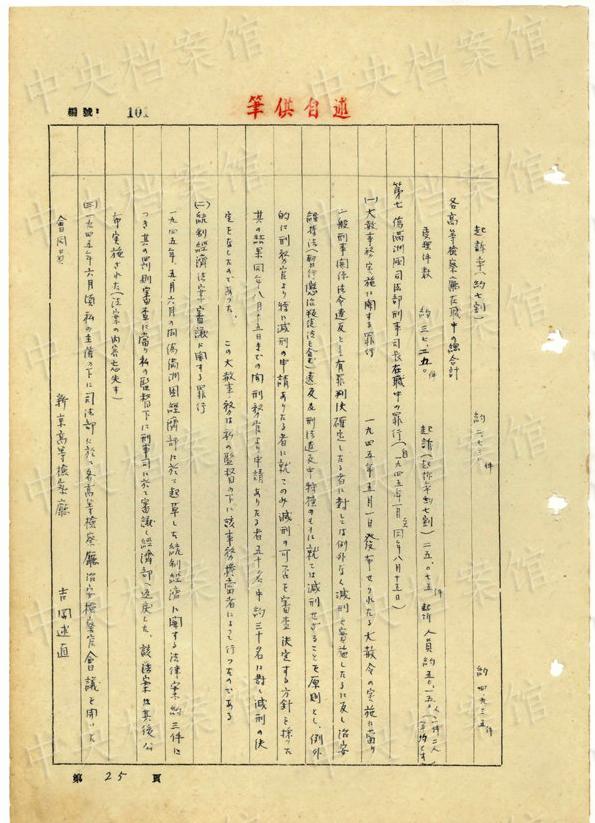 述自供筆
編號: 101
起訴率(約七割) 約二七三〇件 約四九三五件
各高等検察廳在職中の總合計
受理件数 約三七、二五〇件 起訴(起訴率約七割)二五〇七五件 起訴人員約五〇一五〇人(一件二人平均とす)
第七 偽満洲国司法部刑事司長在職中の罪行(自一九四五年一月 至同年八月十五日)
(一)大赦事務実施に関する罪行 一九四五年五月一日発布せられたる大赦令の実施に當り
一般刑事関係法令違反として有罪判決確定したる者に対しては例外なく減刑を実施したるに反し治安
維持法(暫行懲治叛徒法を含む)違反及刑法違反中特殊のものに就ては減刑せざることを原則とし、例外
的に刑務官より特に減刑の申請ありたる者に就てのみ減刑の可否を審査決定する方針を採った
其の結果同年八月十五日までの間刑務官より申請ありたる者五十名中約三十名に対し減刑の決
定をなしたのであった。 この大赦事務は私の監督の下に該事務擔當者によって行ったのである
(二)統制経済法案審議に関する罪行
一九四五年五月六月の間偽満洲国経済部に於て起草した統制経済に関する法律案約三件に
つき其の罰則審査に當り私の監督下に刑事司に於て審議し経済部へ返戻した、該法案は其後公
布実施された(法案の内容忘失す)
(三)一九四五年六月頃私の主催の下に司法部に於て各高等検察廳治安検察官會議を開いた
會同者 新京高等検察廳 吉岡述直
第 25 頁
中央档案馆